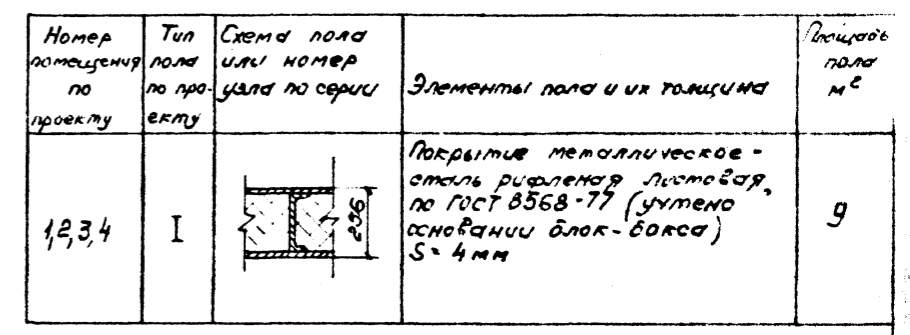 Номер
помещения
по
проекту
Тип
пола
по про-
екту
Схема пола
или номер
узла по серии
Элементы пола и их толщина
Площадь
пола
м²
1,2,3,4
I
296
Покрытие металлическое -
сталь рифленая листовая,
по ГОСТ 8568-77 (учтено
основании блок-бокса)
S = 4 мм
9